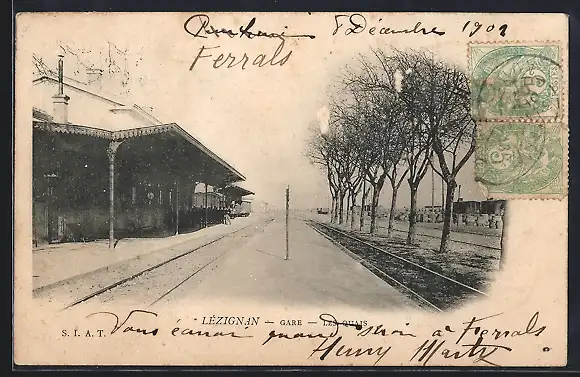 8 Décembre 1902
Ferrals
LÉZIGNAN — GARE — LES QUAIS
S. I. A. T.
Vous écrirai quand serai à Ferrals
Henry Martz